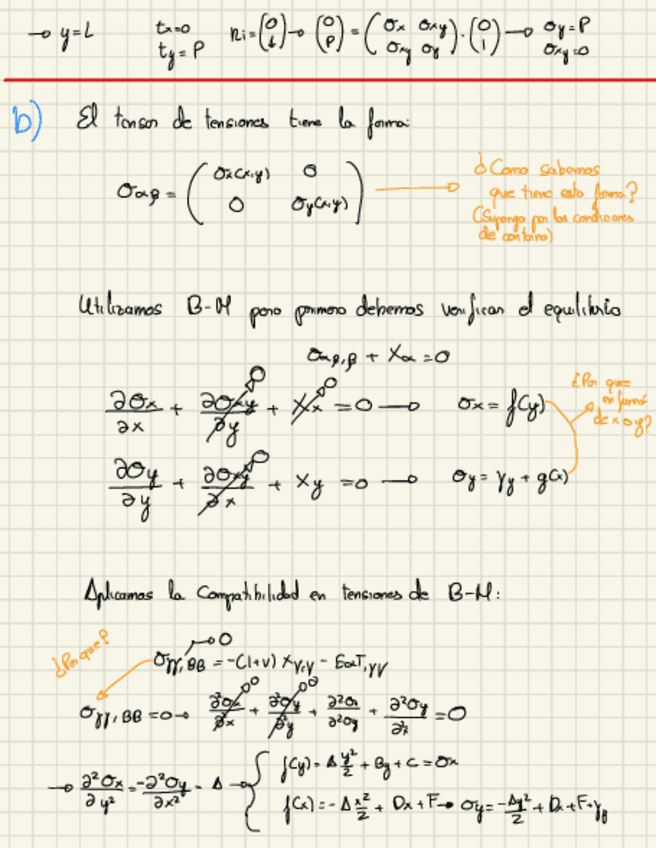 → y=L    tx=0    ni=(0 1)→ (0 P) = (σx σxy σxy σy)·(0 1) → σy=P
ty=P    σxy=0
b) El tensor de tensiones tiene la forma:
σαβ = (σx(x,y) 0 0 σy(x,y))
¿Como sabemos
que tiene esta forma?
(Supongo por las condiciones
de contorno)
Utilizamos B-M pero primero debemos verificar el equilibrio
σαβ,β + Xα = 0
∂σx/∂x + ∂σxy/∂y + Xx = 0 → σx = f(y)
¿Por que
en funcion
de x o y?
∂σy/∂y + ∂σxy/∂x + Xy = 0 → σy = γy + g(x)
Aplicamos la Compatibilidad en tensiones de B-M:
¿Por que?
σγγ,ββ = -(1+ν) Xγ,γ - EαT,γγ
σγγ,ββ = 0 → ∂²σx/∂x + ∂²σy/∂y + ∂²σx/∂²σy + ∂²σy/∂²x = 0
→ ∂²σx/∂y² = -∂²σy/∂x² = A → f(y) = A y²/2 + By + C = σx
f(x) = -A x²/2 + Dx + F → σy = -Ay²/2 + Dx + F + γy